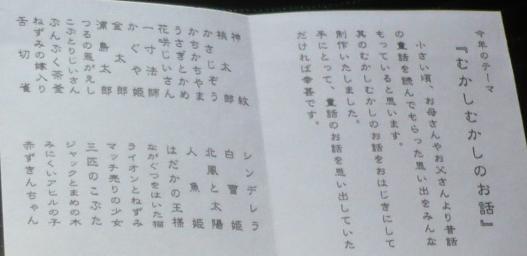 今年のテーマ
『むかしむかしのお話』
小さい頃、お母さんやお父さんより昔話
の童話を読んでもらった思い出をみんな
もっていると思います。
其のむかしむかしのお話をおはじきにして
制作いたしました。
手にとって、童話のお話を思い出していた
だければ幸甚です。
神紋
桃太郎
かさじぞう
かちかちやま
うさぎとかめ
花咲じいさん
一寸法師
かぐや姫
金太郎
浦島太郎
つるの恩がえし
こぶとりじいさん
ぶんぶく茶釜
ねずみの嫁入り
舌切雀
シンデレラ
白雪姫
北風と太陽
人魚姫
はだかの王様
ながぐつをはいた猫
ライオンとねずみ
マッチ売りの少女
三匹のこぶた
ジャックとまめの木
みにくいアヒルの子
赤ずきんちゃん